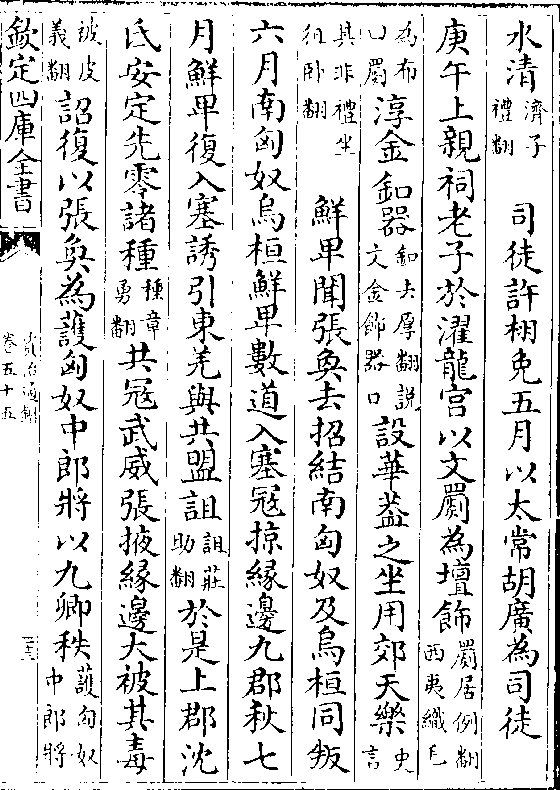 水清濟子禮翻　司徒許栩免五月以太常胡廣為司徒
庚午上親祠老子於濯龍宮以文罽為壇飾罽居例翻西夷織毛
為布曰罽淳金釦器釦去厚翻說文金飾器口設華葢之坐用郊天樂史言
其非禮坐徂卧翻　鮮卑聞張奐去招結南匈奴及烏桓同叛
六月南匈奴烏桓鮮卑數道入塞冦掠緣邊九郡秋七
月鮮卑復入塞誘引東羌與共盟詛詛莊助翻於是上郡沈
氐安定先零諸種種章勇翻共冦武威張掖緣邊大被其毒
被皮義翻詔復以張奐為護匈奴中郎將以九卿秩護匈奴中郎將
欽定四庫全書
資治通鑑
卷五十五